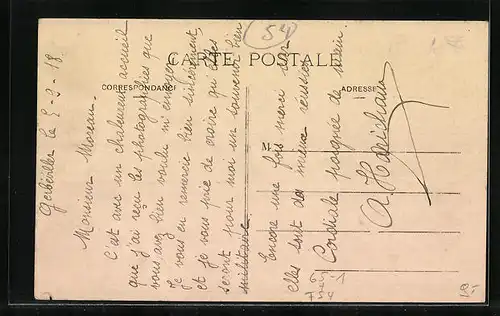 54
CARTE POSTALE
CORRESPONDANCE
ADRESSE
M
Gerbéviller le 5-3-18.
Monsieur Moreau.
C'est avec un chaleureux accueil
que j'ai reçu les photographies que
vous avez bien voulu m'envoyer.
Je vous en remercie bien sincèrement,
et je vous prie de croire qu'elles
seront pour moi un souvenir bien
militaire.
Encore une fois merci car
elles sont des mieux réussies
Cordiale poignée de main.
A.
754